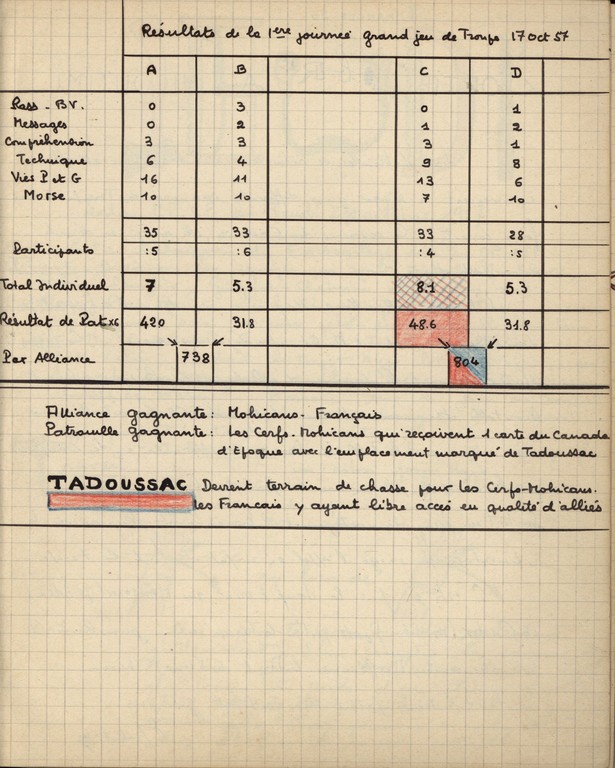 Résultats de la 1ère journeé grand jeu de Troupe 17 Oct 57
A B C D
Pass - BV. 0 3 0 1
Messages 0 2 1 2
Compréhension 3 3 3 1
Technique 6 4 9 8
Vies P et G 16 11 13 6
Morse 10 10 7 10
35 33 33 28
Participants :5 :6 :4 :5
Total Individuel 7 5.3 8.1 5.3
Résultat de Pat x6 420 31.8 48.6 31.8
Par Alliance 738 804
Alliance gagnante: Mohicans - Français
Patrouille gagnante: Les Cerfs - Mohicans qui reçoivent 1 carte du Canada
d'Époque avec l'emplacement marqué de Tadoussac
TADOUSSAC Devient terrain de chasse pour les Cerfs-Mohicans.
les Francais y ayant libre accès en qualité d'alliés